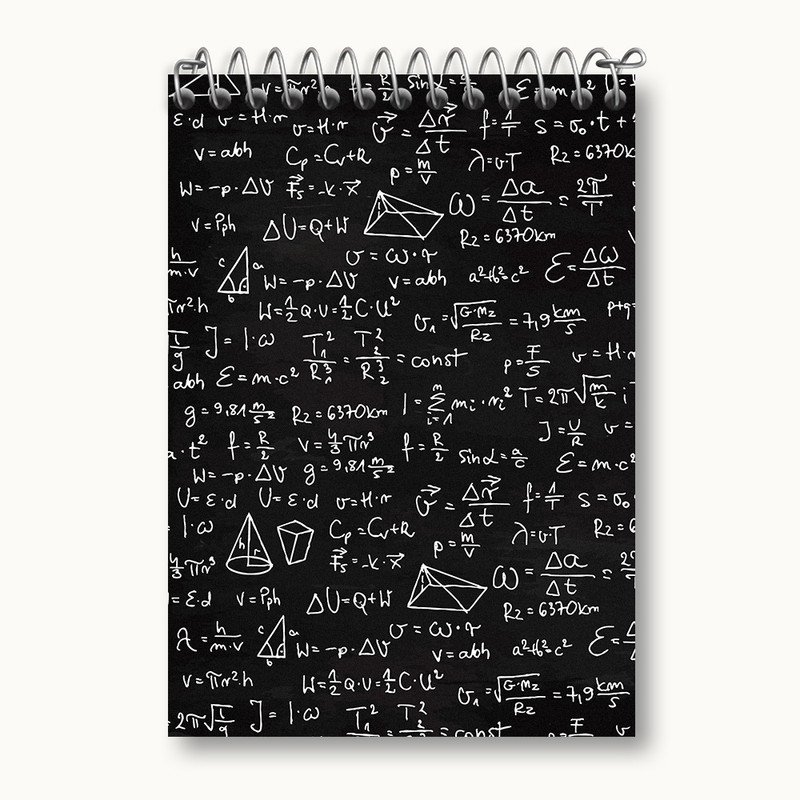 v=πr²h f=R/2 sinα=a/c E=m·c²
ε·d v=H·r v=H·r v⃗=Δr⃗/Δt f=1/T s=σ₀·t+
v=abh Cp=Cv+R p=m/V λ=v·T Rz=6370k
W=-p·ΔV F⃗s=-k·x⃗ ω=Δa/Δt=2π/T
v=Pph ΔU=Q+W Rz=6370km
h/m·v c a b v=ω·r
W=-p·ΔV v=abh a²+b²=c² ε=Δω/Δt
πr²·h W=½Q·U=½C·U² σ₁=√(G·Mz/Rz)=7,9 km/s p+q=
J=I·ω T₁²/R₁³=T₂²/R₂³=const p=F/S v=H·r
abh E=m·c²
g=9,81 m/s² Rz=6370km I=Σmi·ri² n i=1 T=2π√(m/k)
J=U/R v=
a·t² f=R/2 v=4/3πr³ f=R/2 sinα=a/c E=m·c²
W=-p·ΔV g=9,81 m/s²
U=ε·d U=ε·d v=H·r v⃗=Δr⃗/Δt f=1/T s=σ₀
I·ω h r Cp=Cv+R p=m/V λ=v·T Rz=6
4/3πr³ F⃗s=-k·x⃗ ω=Δa/Δt=2
=ε·d v=Pph ΔU=Q+W Rz=6370km
λ=h/m·v c a b W=-p·ΔV v=ω·r
v=abh a²+b²=c² ε=Δ
v=πr²·h W=½Q·U=½C·U² σ₁=√(G·Mz/Rz)=7,9 km/s
2π√(l/g) J=I·ω T₁²=T₂²=const p=F v